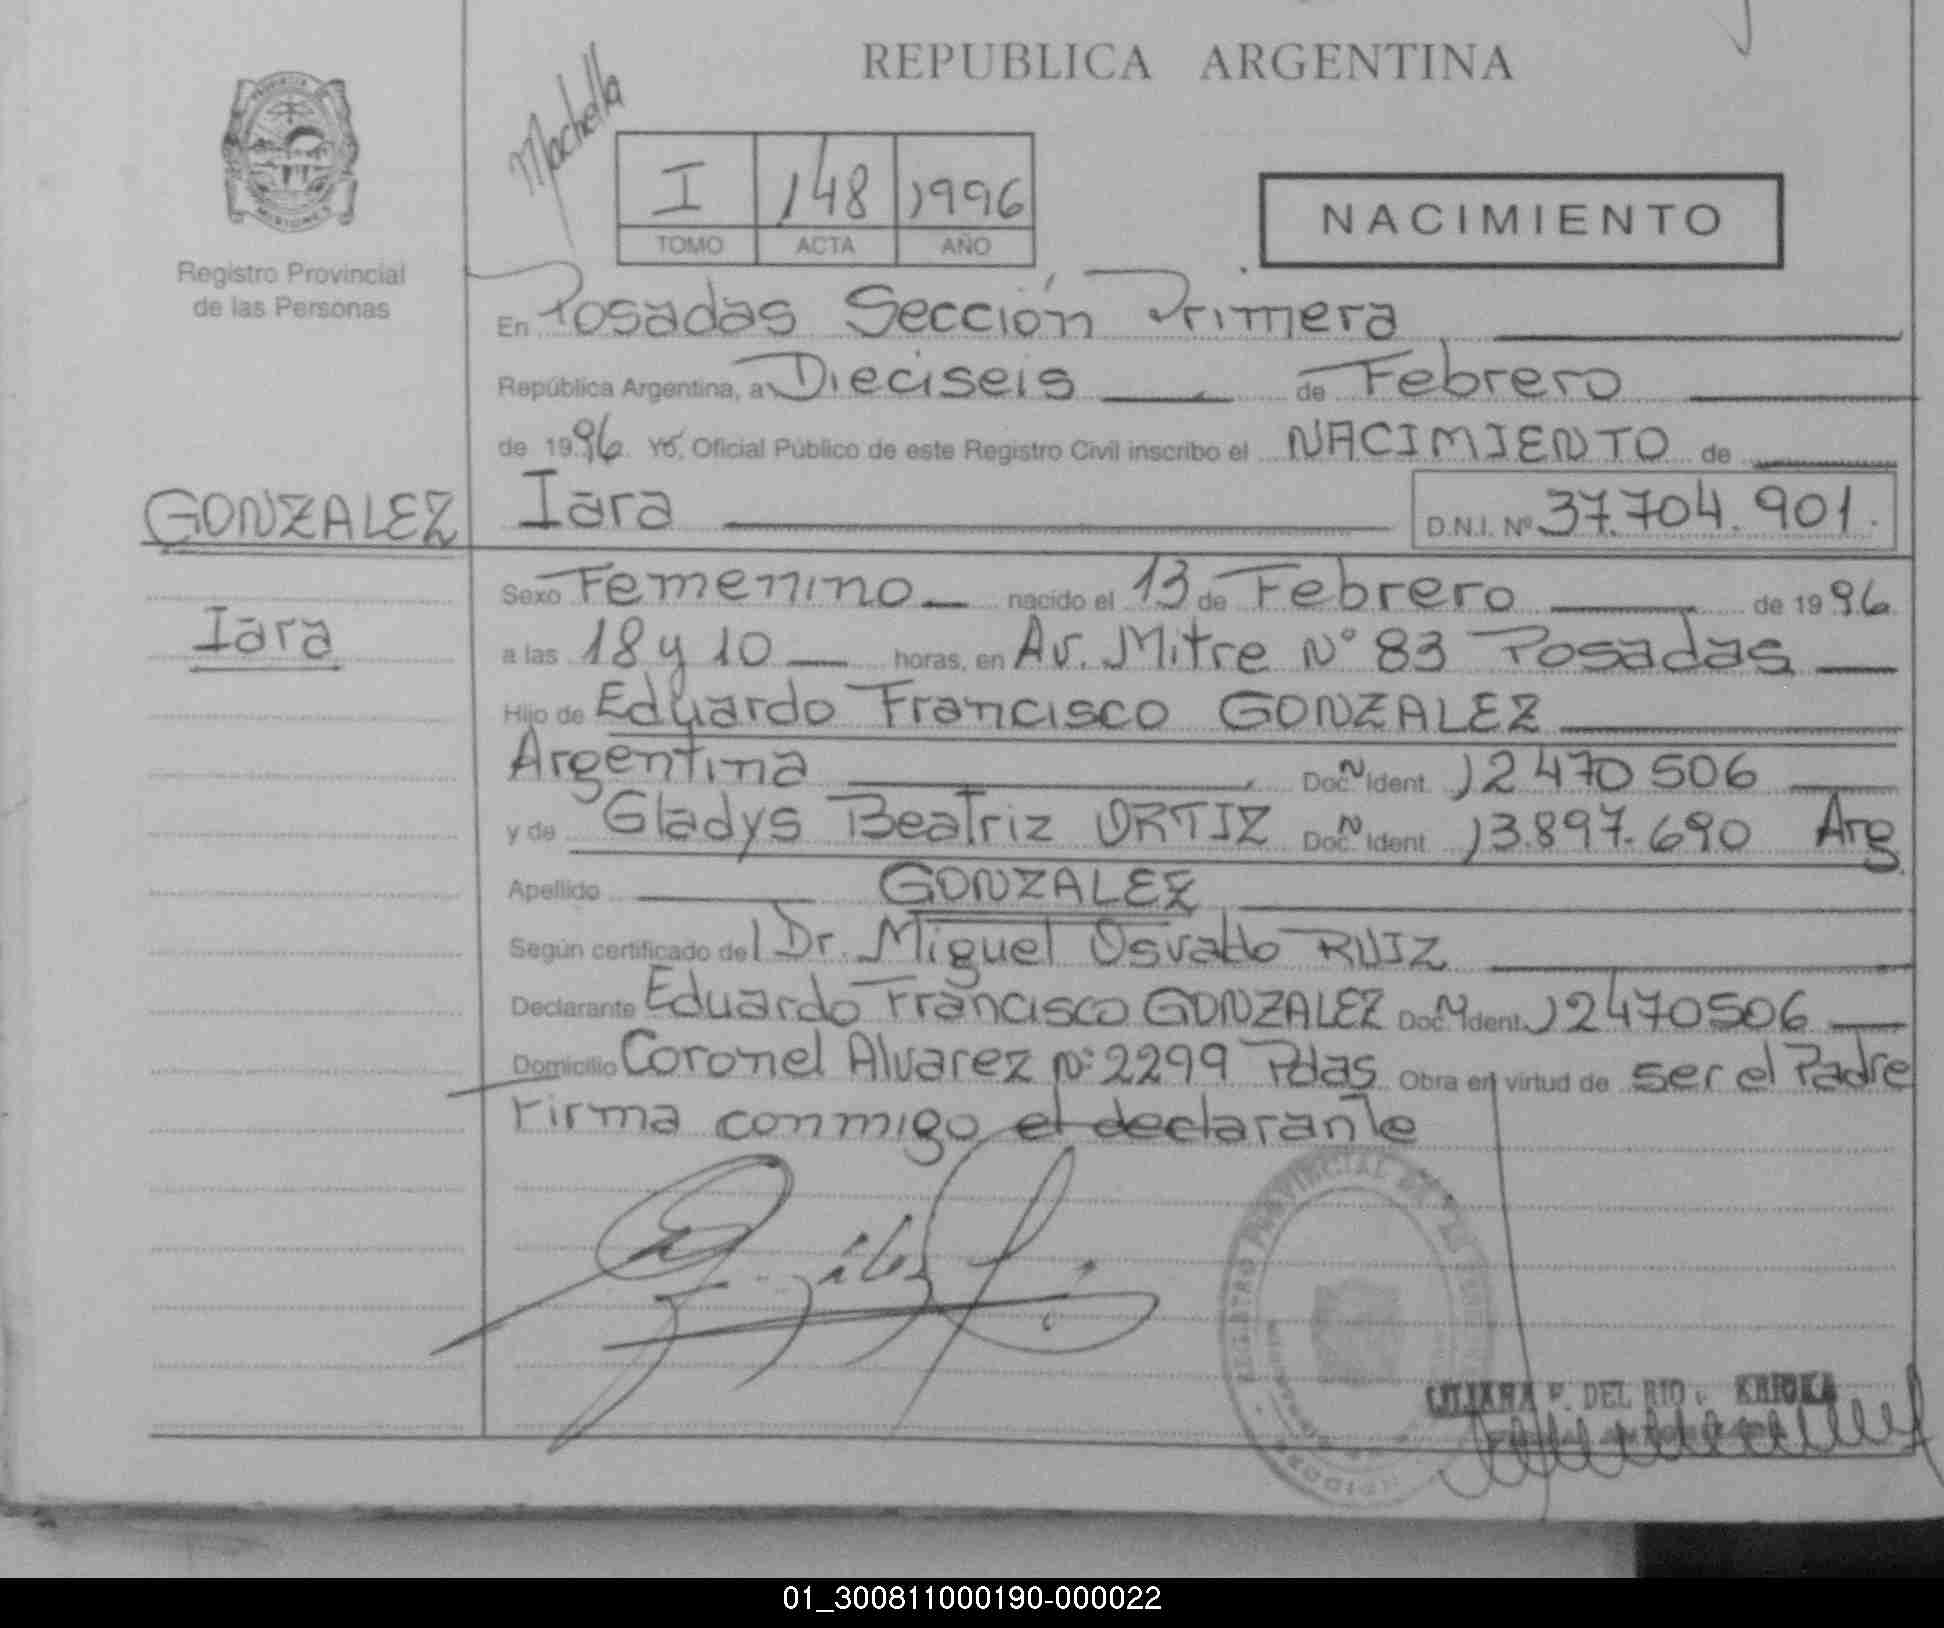 REPUBLICA ARGENTINA
Machella
I 148 1996
TOMO ACTA AÑO
NACIMIENTO
MISIONES
Registro Provincial
de las Personas
En Posadas Sección Primera
República Argentina, a Dieciseis de Febrero
de 1996. Yo, Oficial Público de este Registro Civil inscribo el NACIMIENTO de
GONZALEZ
Iara
Iara D.N.I. Nº 37.704.901.
Sexo Femenino nacido el 13 de Febrero de 1996
a las 18 y 10 horas, en Av. Mitre Nº 83 Posadas
Hijo de Eduardo Francisco GONZALEZ
Argentina Doc. N Ident. 12470506
y de Gladys Beatriz ORTIZ Doc. N Ident 13.897.690 Arg
Apellido GONZALEZ
Según certificado del Dr. Miguel Osvaldo RUIZ
Declarante Eduardo Francisco GONZALEZ Doc. N Ident. 12470506
Domicilio Coronel Alvarez Nº 2299 Pdas. Obra en virtud de ser el Padre
Firma conmigo el declarante
REGISTRO PROVINCIAL DE LAS PERSONAS
P. DEL RIO
01_300811000190-000022